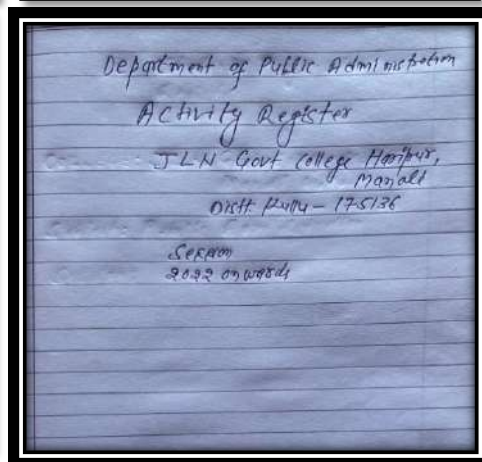 Department of Public Administration
Activity Register
JLN Govt College Haripur,
Manali
Distt. Kullu - 175136
Session
2022 onwards